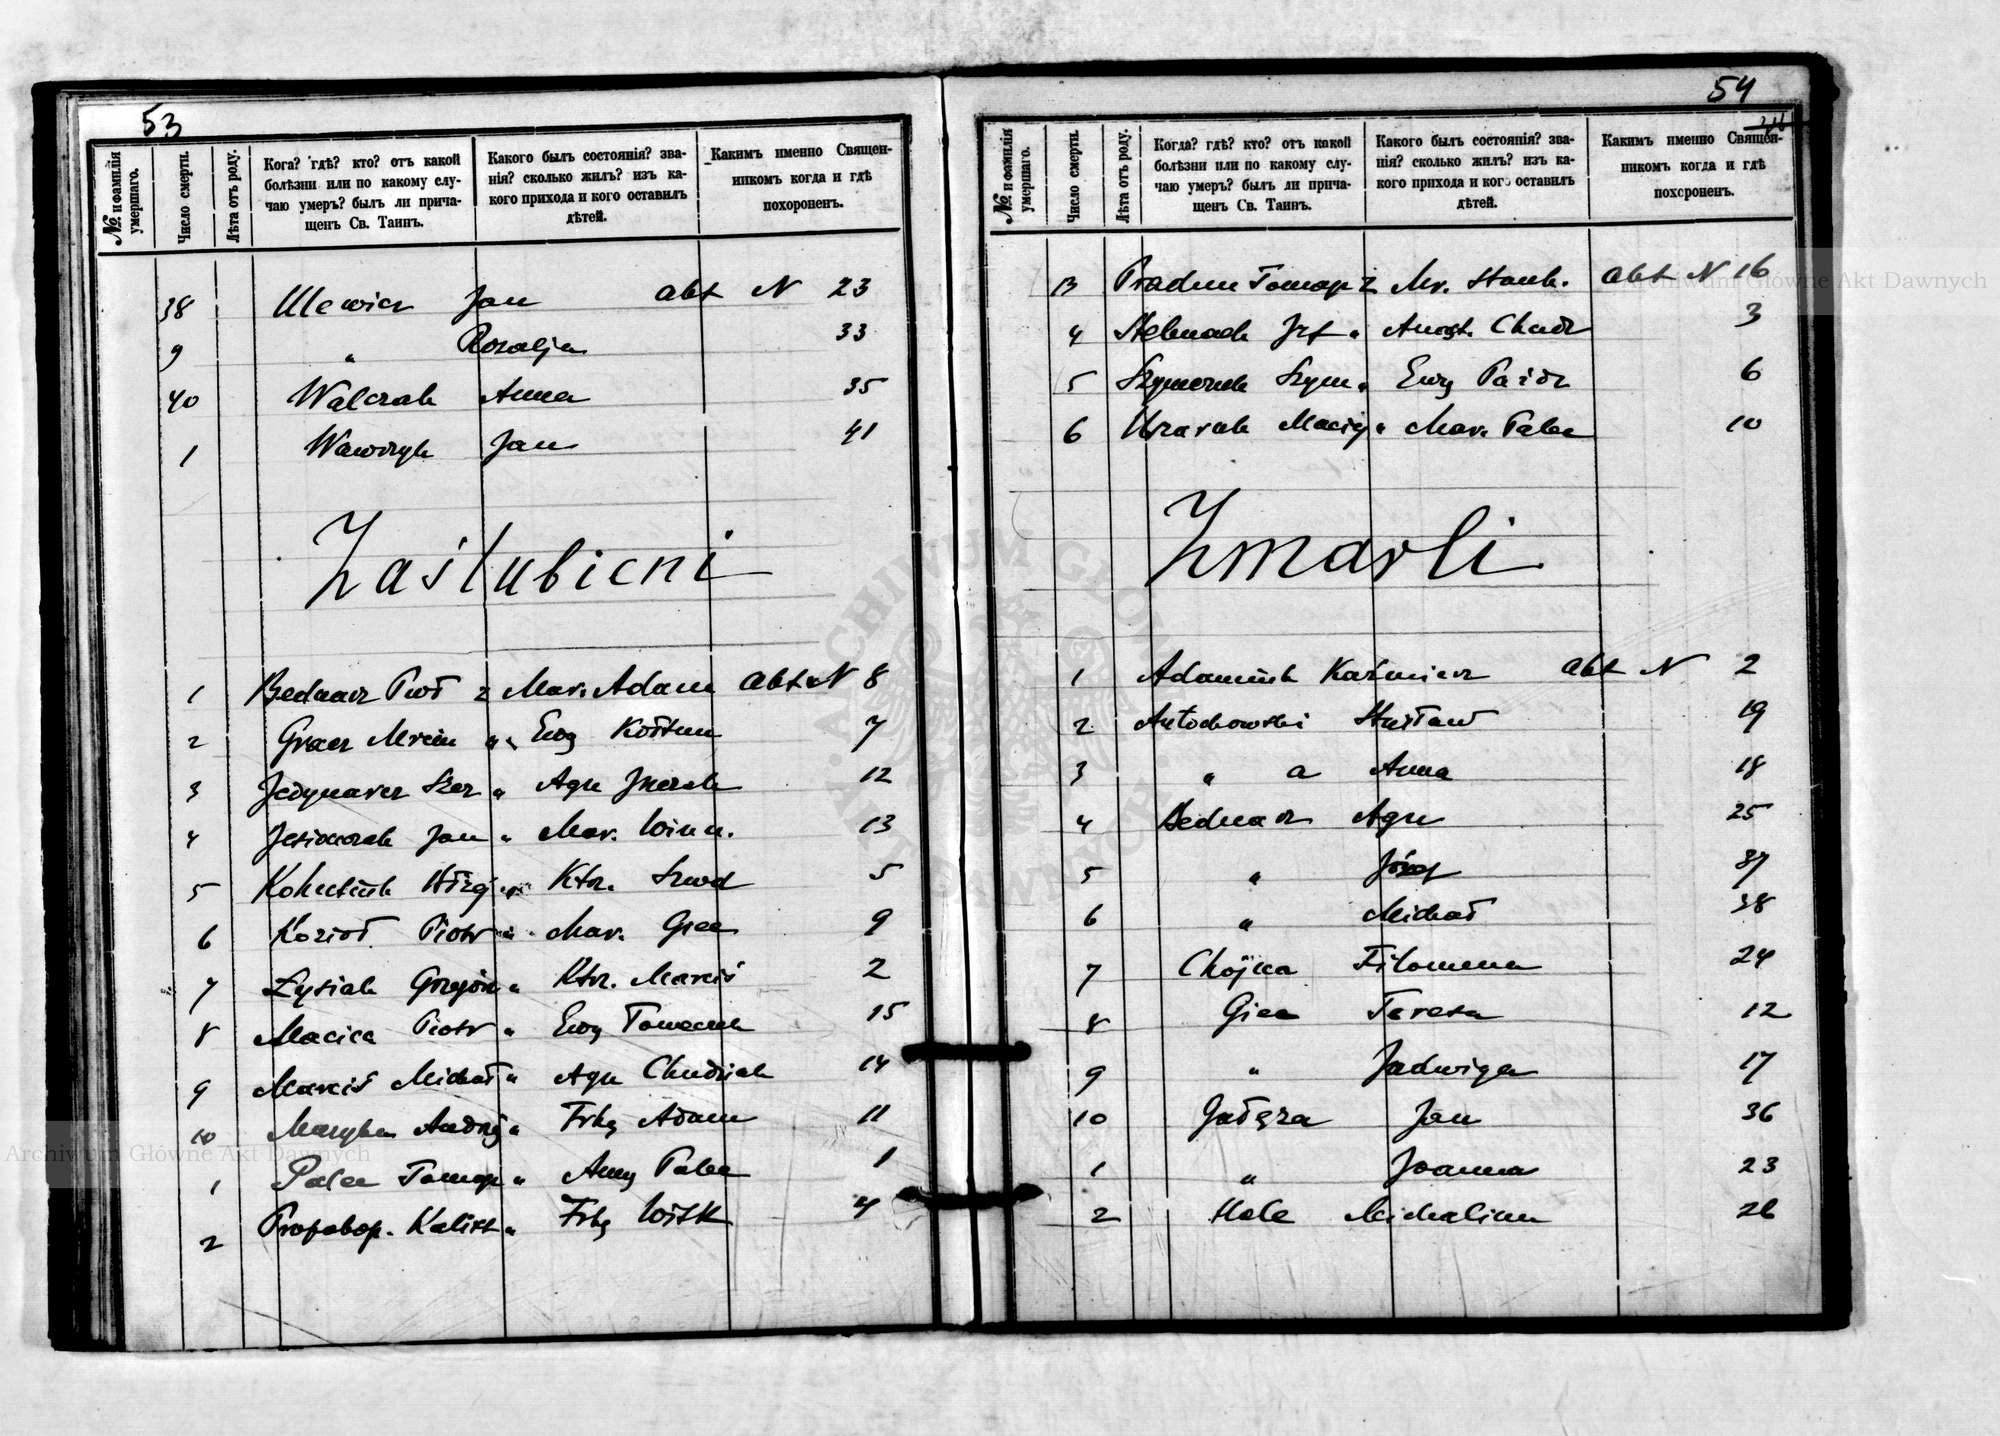 53
№ и фамилія умершаго.
Число смерти.
Лѣта отъ роду.
Кога? гдѣ? кто? отъ какой
болѣзни или по какому слу-
чаю умеръ? былъ ли прича-
щенъ Св. Таинъ.
Какого былъ состоянія? зва-
нія? сколько жилъ? изъ ка-
кого прихода и кого оставилъ
дѣтей.
Какимъ именно Священ-
никомъ когда и гдѣ
похороненъ.
38 Ulewicz Jan akt N 23
9 " Rozalja 33
40 Walczak Anna 35
1 Wawrzyk Jan 41
Zaślubieni
1 Bednarz Piotr z Mar. Adam akt N 8
2 Marcin " Ewą Kołtun 7
3 Szcz " Agn 12
4 Jan " Mar. Winn. 13
5 " Ktrz. Szwed 5
6 Kozioł Piotr " Mar. Giec 9
7 Łysiak Grzegórz " Ktrz. Marciś 2
8 Piotr " Ewą 15
9 Michał " Agn Chudziak 14
10 Andrzej " Frką Adam 11
1 Palec Tomasz " Anną Palec 1
2 Kalikst " Frką Witk 4
54
№ и фамилія умершаго.
Число смерти.
Лѣта отъ роду.
Когда? гдѣ? кто? отъ какой
болѣзни или по какому слу-
чаю умеръ? былъ ли прича-
щенъ Св. Таинъ.
Какого былъ состоянія? зва-
нія? сколько жилъ? изъ ка-
кого прихода и кого оставилъ
дѣтей.
Какимъ именно Священ-
никомъ когда и гдѣ
похороненъ.
13 Tomasz z Mr. akt N 16
4 Stelmach Jzf " 3
5 Szym " Ewą 6
6 Maciej " Mar. Palec 10
Zmarli
1 Adamiuk Kaźmierz akt N 2
2 Antochowski Stusław 19
3 " a Anna 18
4 Bednarz Agn 25
5 " Józef 37
6 " Michał 38
7 Chójna Filomena 24
8 Giec Teresa 12
9 " Jadwiga 17
10 Gałęza Jan 36
1 " Joanna 23
2 Michalina 26
Archiwum Główne Akt Dawnych
Archiwum Główne Akt Dawnych
ARCHIWUM GŁÓWNE AKT DAWNYCH